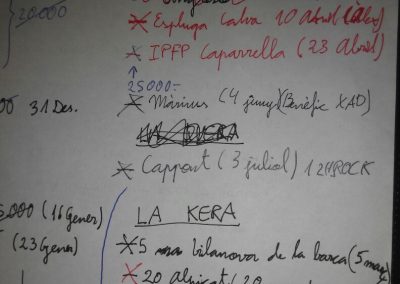 20.000
* Espluga Calva 10 Abril
* IPFP Caparrella (23 Abril)
↑
25000-
31 Des.
* Màrius (4 juny) (Benèfic XAD)
* Cappont (3 juliol) 12H ROCK
5.000 (16 Gener)
LA KERA
(23 Gener)
* 5 bilanova de la barca (5
* 20 Alpicat (20